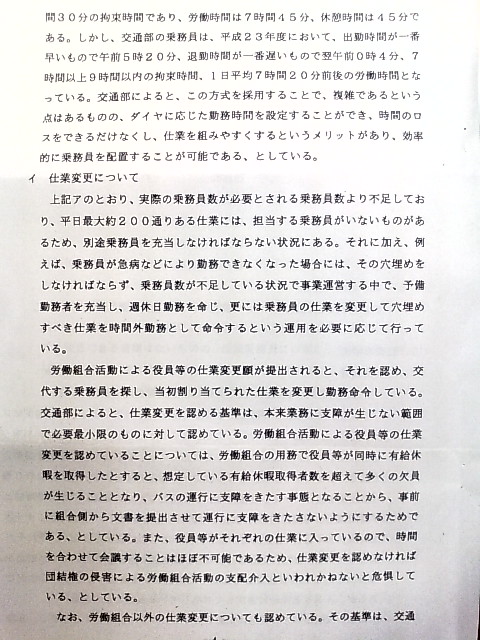 間30分の拘束時間であり、労働時間は7時間45分、休憩時間は45分で
ある。しかし、交通部の乗務員は、平成23年度において、出勤時間が一番
早いもので午前5時20分、退勤時間が一番遅いもので翌午前0時4分、7
時間以上9時間以内の拘束時間、1日平均7時間20分前後の労働時間とな
っている。交通部によると、この方式を採用することで、複雑であるという
点はあるものの、ダイヤに応じた勤務時間を設定することができ、時間のロ
スをできるだけなくし、仕業を組みやすくするというメリットがあり、効率
的に乗務員を配置することが可能である、としている。
イ 仕業変更について
上記アのとおり、実際の乗務員数が必要とされる乗務員数より不足してお
り、平日最大約200通りある仕業には、担当する乗務員がいないものがあ
るため、別途乗務員を充当しなければならない状況にある。それに加え、例
えば、乗務員が急病などにより勤務できなくなった場合には、その穴埋めを
しなければならず、乗務員数が不足している状況で事業運営する中で、予備
勤務者を充当し、週休日勤務を命じ、更には乗務員の仕業を変更して穴埋め
すべき仕業を時間外勤務として命令するという運用を必要に応じて行って
いる。
労働組合活動による役員等の仕業変更願が提出されると、それを認め、交
代する乗務員を探し、当初割り当てられた仕業を変更し勤務命令している。
交通部によると、仕業変更を認める基準は、本来業務に支障が生じない範囲
で必要最小限のものに対して認めている。労働組合活動による役員等の仕業
変更を認めていることについては、労働組合の用務で役員等が同時に有給休
暇を取得したとすると、想定している有給休暇取得者数を超えて多くの欠員
が生じることとなり、バスの運行に支障をきたす事態となることから、事前
に組合側から文書を提出させて運行に支障をきたさないようにするためで
ある、としている。また、役員等がそれぞれの仕業に入っているので、時間
を合わせて会議することはほぼ不可能であるため、仕業変更を認めなければ
団結権の侵害による労働組合活動の支配介入といわれかねないと危惧して
いる、としている。
なお、労働組合以外の仕業変更についても認めている。その基準は、交通